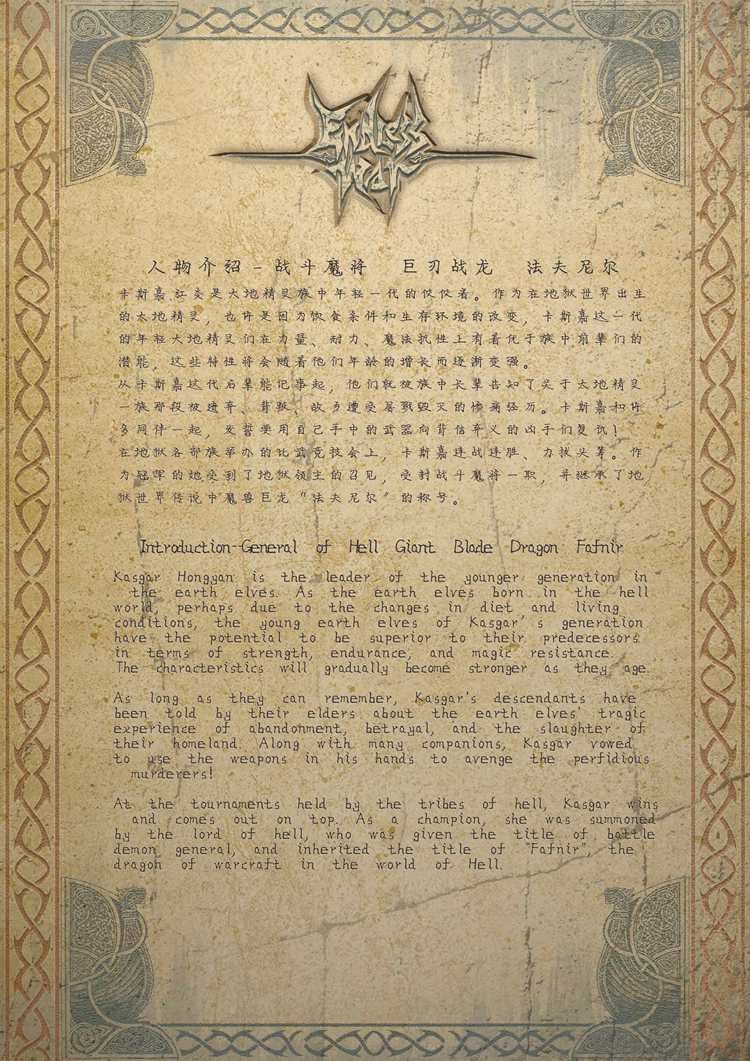 Endless War
人物介绍-战斗魔将 巨刃战龙 法夫尼尔
卡斯嘉红炎是大地精灵族中年轻一代的佼佼者。作为在地狱世界出生
的大地精灵，也许是因为饮食条件和生存环境的改变，卡斯嘉这一代
的年轻大地精灵们在力量、耐力、魔法抗性上有着优于族中前辈们的
潜能，这些特性将会随着他们年龄的增长而逐渐变强。
从卡斯嘉这代后辈能记事起，他们就被族中长辈告知了关于大地精灵
一族那段被遗弃、背叛、故乡遭受屠戮毁灭的惨痛经历。卡斯嘉和许
多同伴一起，发誓要用自己手中的武器向背信弃义的凶手们复仇！
在地狱各部族举办的比武竞技会上，卡斯嘉连战连胜、力拔头筹。作
为冠军的她受到了地狱领主的召见，受封战斗魔将一职，并继承了地
狱世界传说中魔兽巨龙“法夫尼尔”的称号。
Introduction-General of Hell Giant Blade Dragon Fafnir
Kasgar Hongyan is the leader of the younger generation in
the earth elves. As the earth elves born in the hell
world, perhaps due to the changes in diet and living
conditions, the young earth elves of Kasgar's generation
have the potential to be superior to their predecessors
in terms of strength, endurance, and magic resistance.
The characteristics will gradually become stronger as they age.
As long as they can remember, Kasgar's descendants have
been told by their elders about the earth elves' tragic
experience of abandonment, betrayal, and the slaughter of
their homeland. Along with many companions, Kasgar vowed
to use the weapons in his hands to avenge the perfidious
murderers!
At the tournaments held by the tribes of hell, Kasgar wins
and comes out on top. As a champion, she was summoned
by the lord of hell, who was given the title of battle
demon general, and inherited the title of "Fafnir", the
dragon of warcraft in the world of Hell.